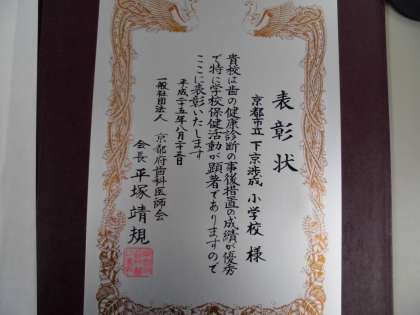 表彰状
京都市立 下京渉成 小学校 様
貴校は歯の健康診断の事後措置の成績が優秀
で特に学校保健活動が顕著でありますので
ここに表彰いたします
平成二十五年八月二十三日
一般社団法人 京都府歯科医師会
会長 平塚靖規